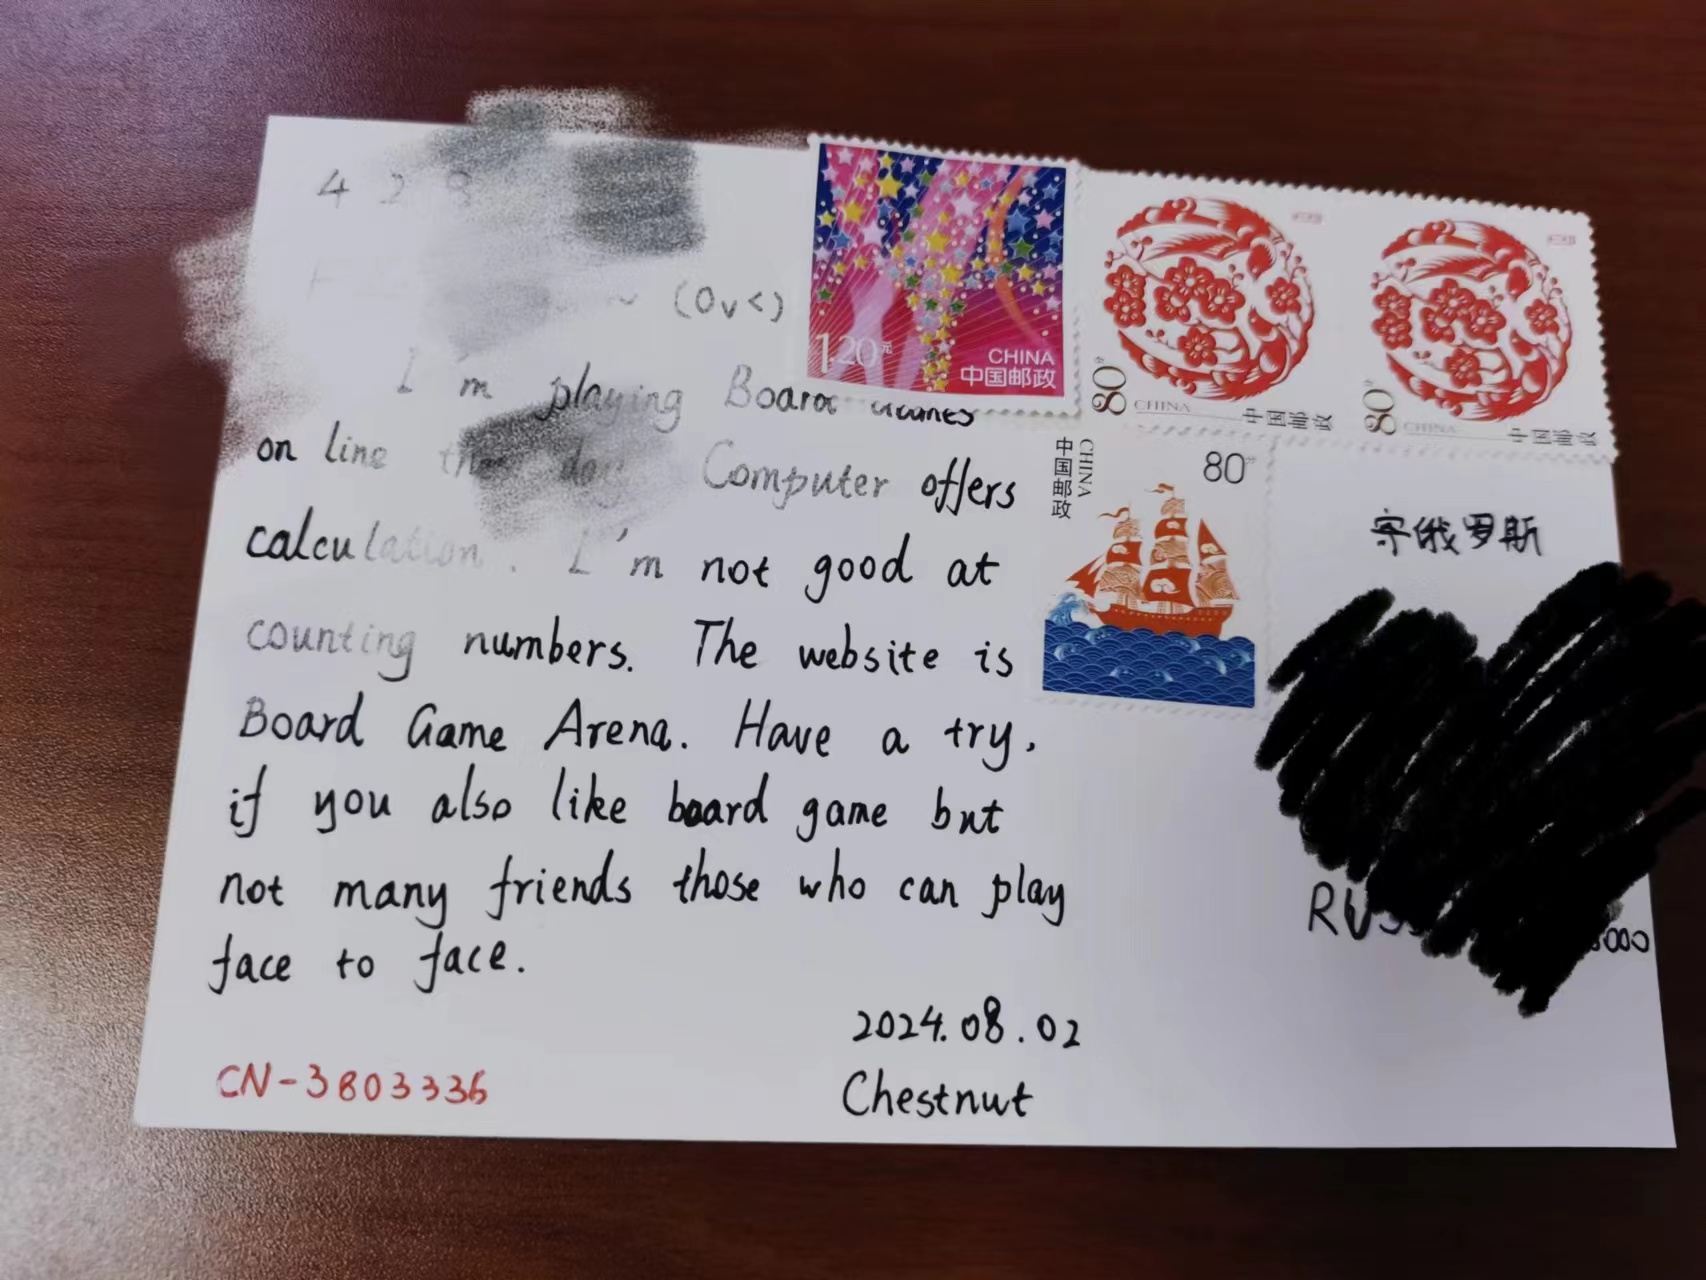 4 2 8
(Ov<)
I'm playing Board Games
on line day Computer offers
calculation. I'm not good at
counting numbers. The website is
Board Game Arena. Have a try,
if you also like board game but
not many friends those who can play
face to face.
2024.08.02
Chestnut
CN-3803336
1.20元
CHINA
中国邮政
80分
CHINA
中国邮政
80分
CHINA
中国邮政
中国邮政
CHINA
80分
寄俄罗斯